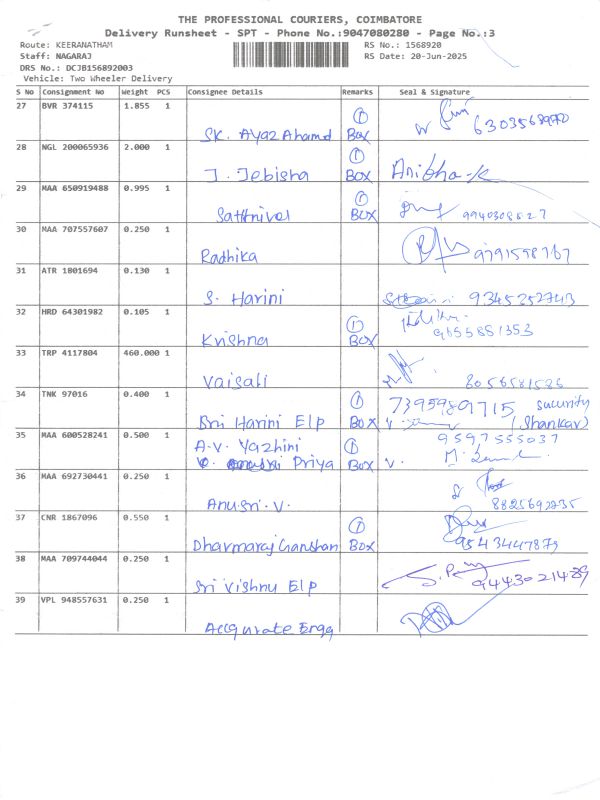 THE PROFESSIONAL COURIERS, COIMBATORE
Delivery Runsheet - SPT - Phone No.:9047080280 - Page No.:3
Route: KEERANATHAM RS No.: 1568920
Staff: NAGARAJ RS Date: 20-Jun-2025
DRS No.: DCJB156892003
Vehicle: Two Wheeler Delivery
S No Consignment No Weight PCS Consignee Details Remarks Seal & Signature
27 BVR 374115 1.855 1
SK. Ayaz Ahamd ① Box
28 NGL 200065936 2.000 1
J. Jebisha ① BOX
29 MAA 650919488 0.995 1
Sakthivel ① BOX
30 MAA 707557607 0.250 1
Radhika
31 ATR 1801694 0.130 1
S. Harini 9345252743
32 HRD 64301982 0.105 1
Krishna ① BOX 9655851353
33 TRP 4117804 460.000 1
Vaisali 8056581586
34 TNK 97016 0.400 1
Sri Harini Elp ① BOX security (Shankar)
35 MAA 600528241 0.500 1
A.V. Yazhini 9597555037
Priya ① BOX
36 MAA 692730441 0.250 1
Anusri. V. 8825692235
37 CNR 1867096 0.550 1
Dharmaraj ① BOX 9543447879
38 MAA 709744044 0.250 1
Sri Vishnu Elp 9443021489
39 VPL 948557631 0.250 1
Accqurate Engg